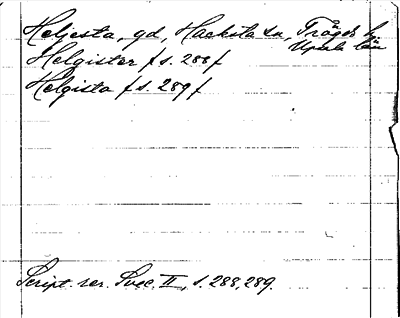 Heljesta, gd, Hacksta sn, Trögds h.
Upsala län
Helgister f s. 288 f
Helgista f s. 289 f
Script. rer. Svec. II, s. 288, 289.